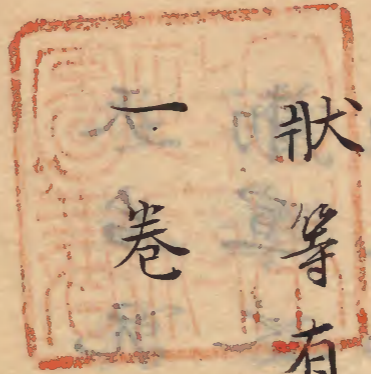 狀等有
一卷